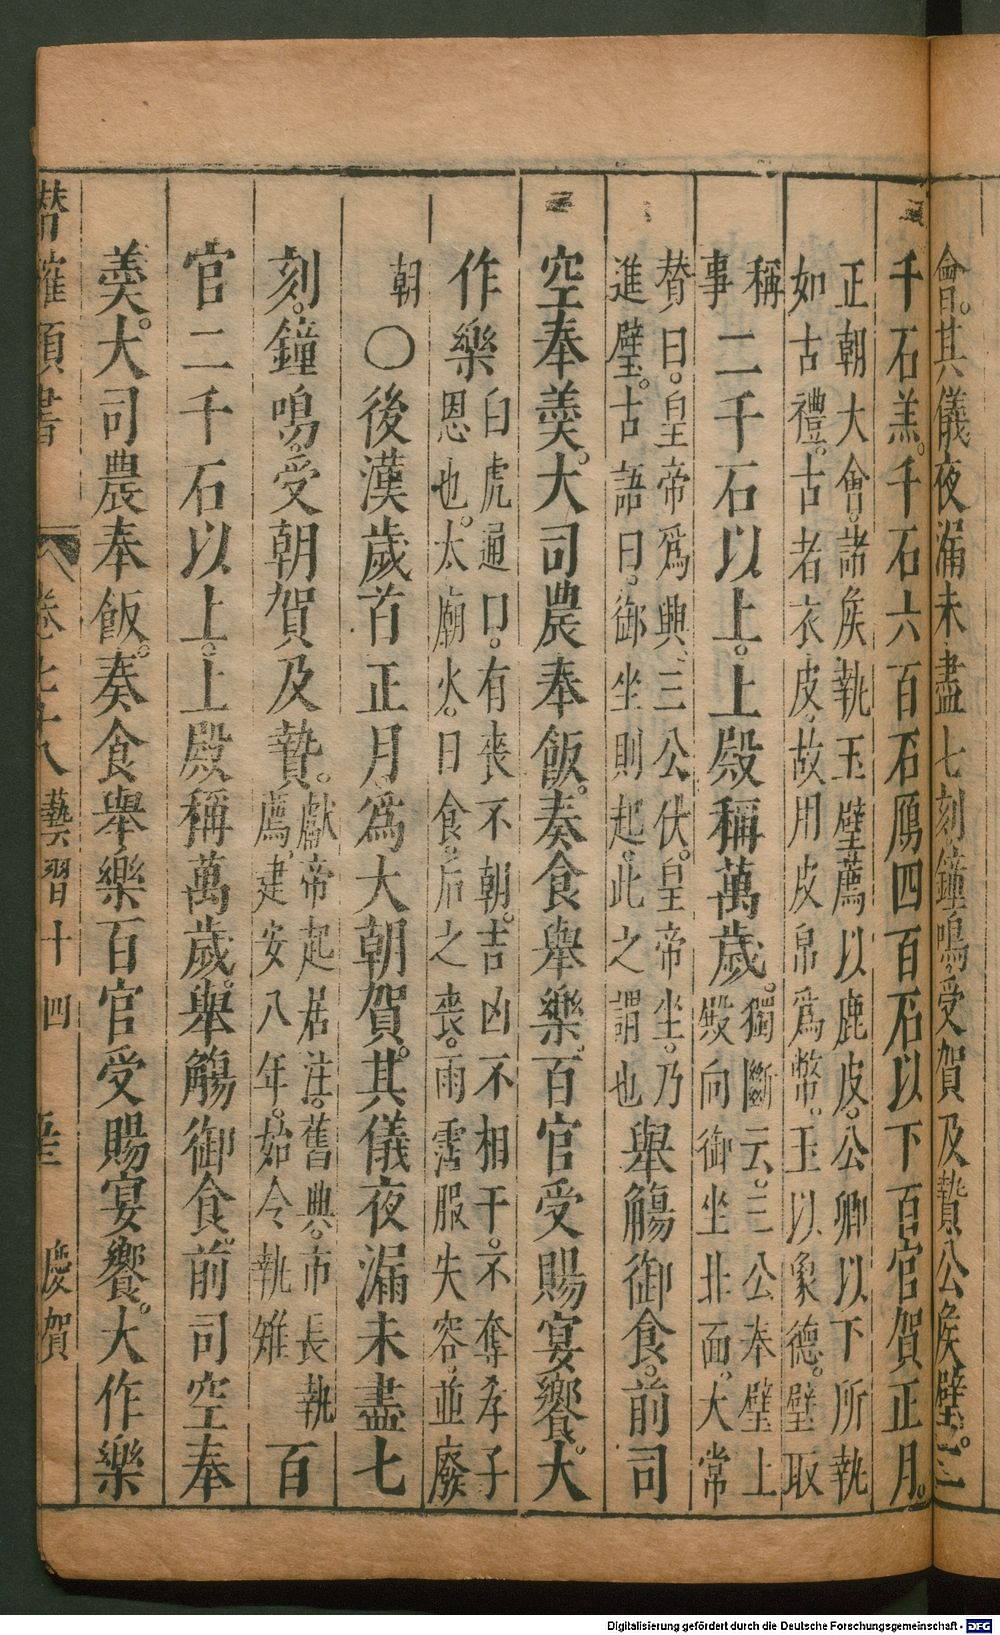 會。其儀夜漏未盡七刻鐘鳴。受賀及贄公侯璧。二
千石羔。千石六百石鴈四百石以下百官賀正月。
正朝大會。諸侯執玉璧薦以鹿皮。公卿以下所執
如古禮。古者衣皮。故用皮帛爲幣。玉以象德。璧取
稱
事
二千石以上。上殿稱萬歲。
獨斷云。三公奉璧上
殿向御坐北面。大常
賛曰。皇帝爲興、三公伏。皇帝坐。乃
進璧。古語曰。御坐則起。此之謂也
舉觴御食。前司
空奉羹。大司農奉飯。奏食舉樂。百官受賜宴饗。大
作樂
白虎通曰。有喪不朝。吉凶不相干。不奪孝子
恩也。太廟火。日食。后之喪。雨霑服失容。並廢
朝
〇後漢歲首正月爲大朝賀。其儀夜漏未盡七
刻。鐘鳴。受朝賀及贄。
獻帝起居注。舊典。市長執
鴈。建安八年。始令執雉
百
官二千石以上。上殿稱萬歲。舉觴御食。前司空奉
羹。大司農奉飯。奏食舉樂百官受賜宴饗。大作樂
潛確類書
卷七十八
藝習十四
慶賀
Digitalisierung gefördert durch die Deutsche Forschungsgemeinschaft - DFG